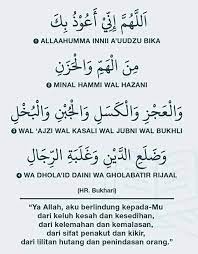 اَللَّهُمَّ إِنِّي أَعُوْذُ بِكَ
ALLAAHUMMA INNII A'UUDZU BIKA
مِنَ الْهَمِّ وَالْحَزَنِ
MINAL HAMMI WAL HAZANI
وَالْعَجْزِ وَالْكَسَلِ وَالْجُبْنِ وَالْبُخْلِ
WAL 'AJZI WAL KASALI WAL JUBNI WAL BUKHLI
وَضَلَعِ الدَّيْنِ وَغَلَبَةِ الرِّجَالِ
WA DHOLA'ID DAINI WA GHOLABATIR RIJAAL
(HR. Bukhari)
"Ya Allah, aku berlindung kepada-Mu
dari keluh kesah dan kesedihan,
dari kelemahan dan kemalasan,
dari sifat penakut dan kikir,
dari lilitan hutang dan penindasan orang."